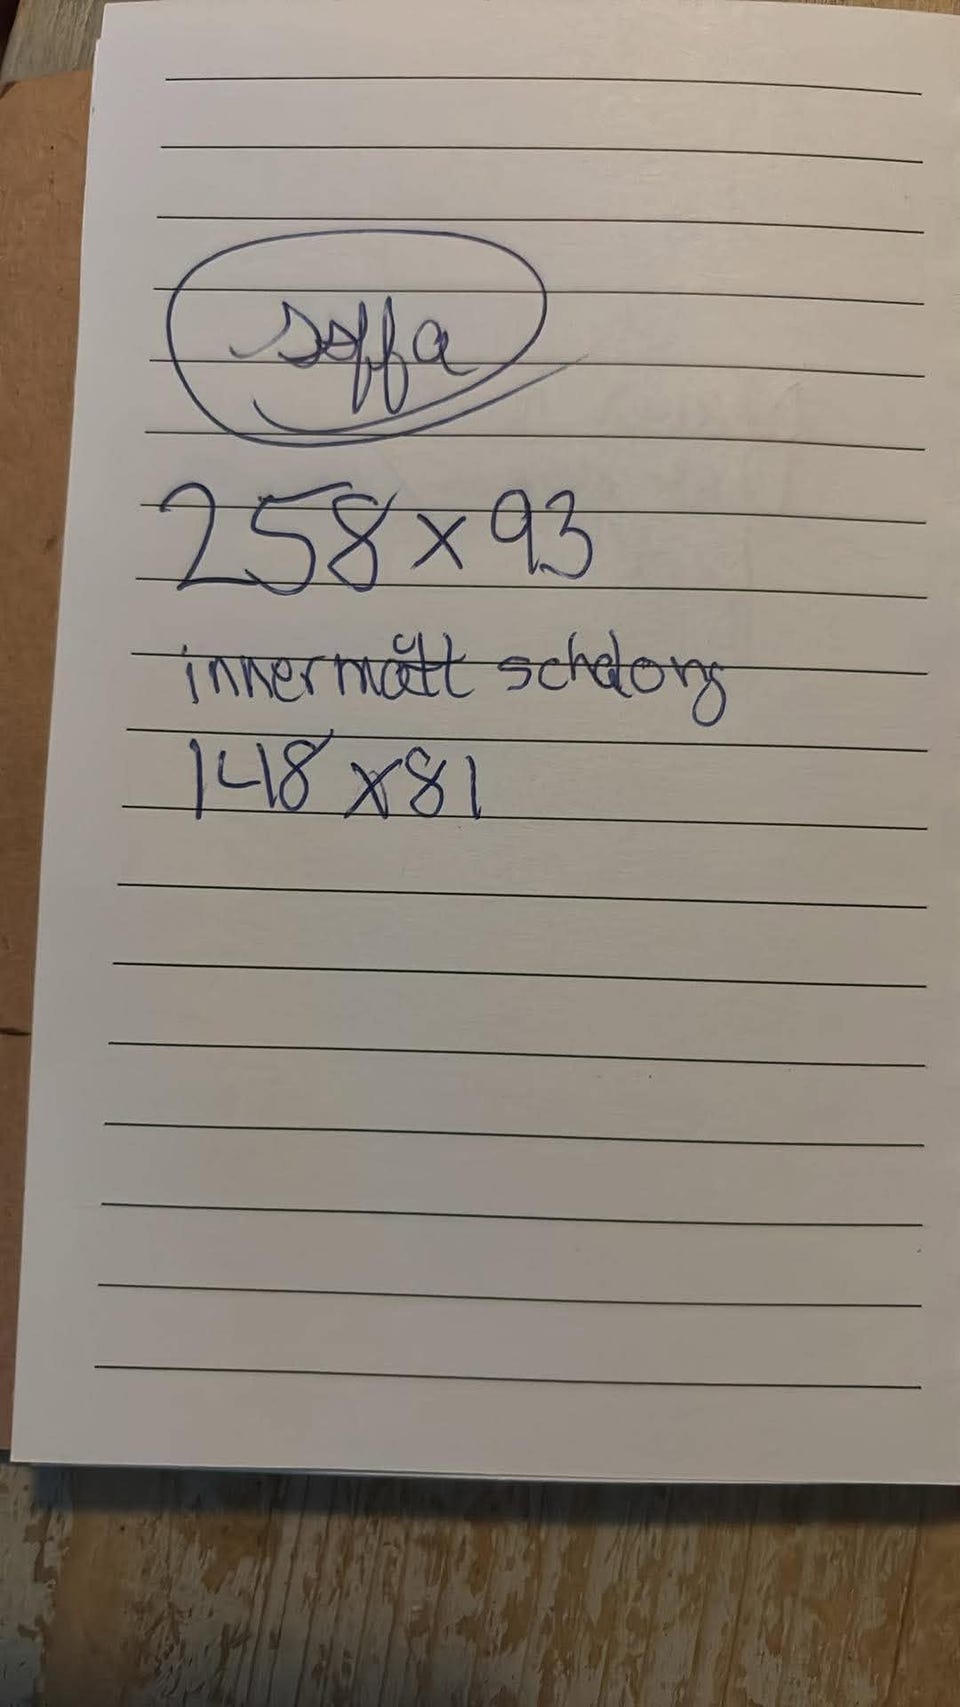 soffa
258 x 93
innermått schelong
148 x 81